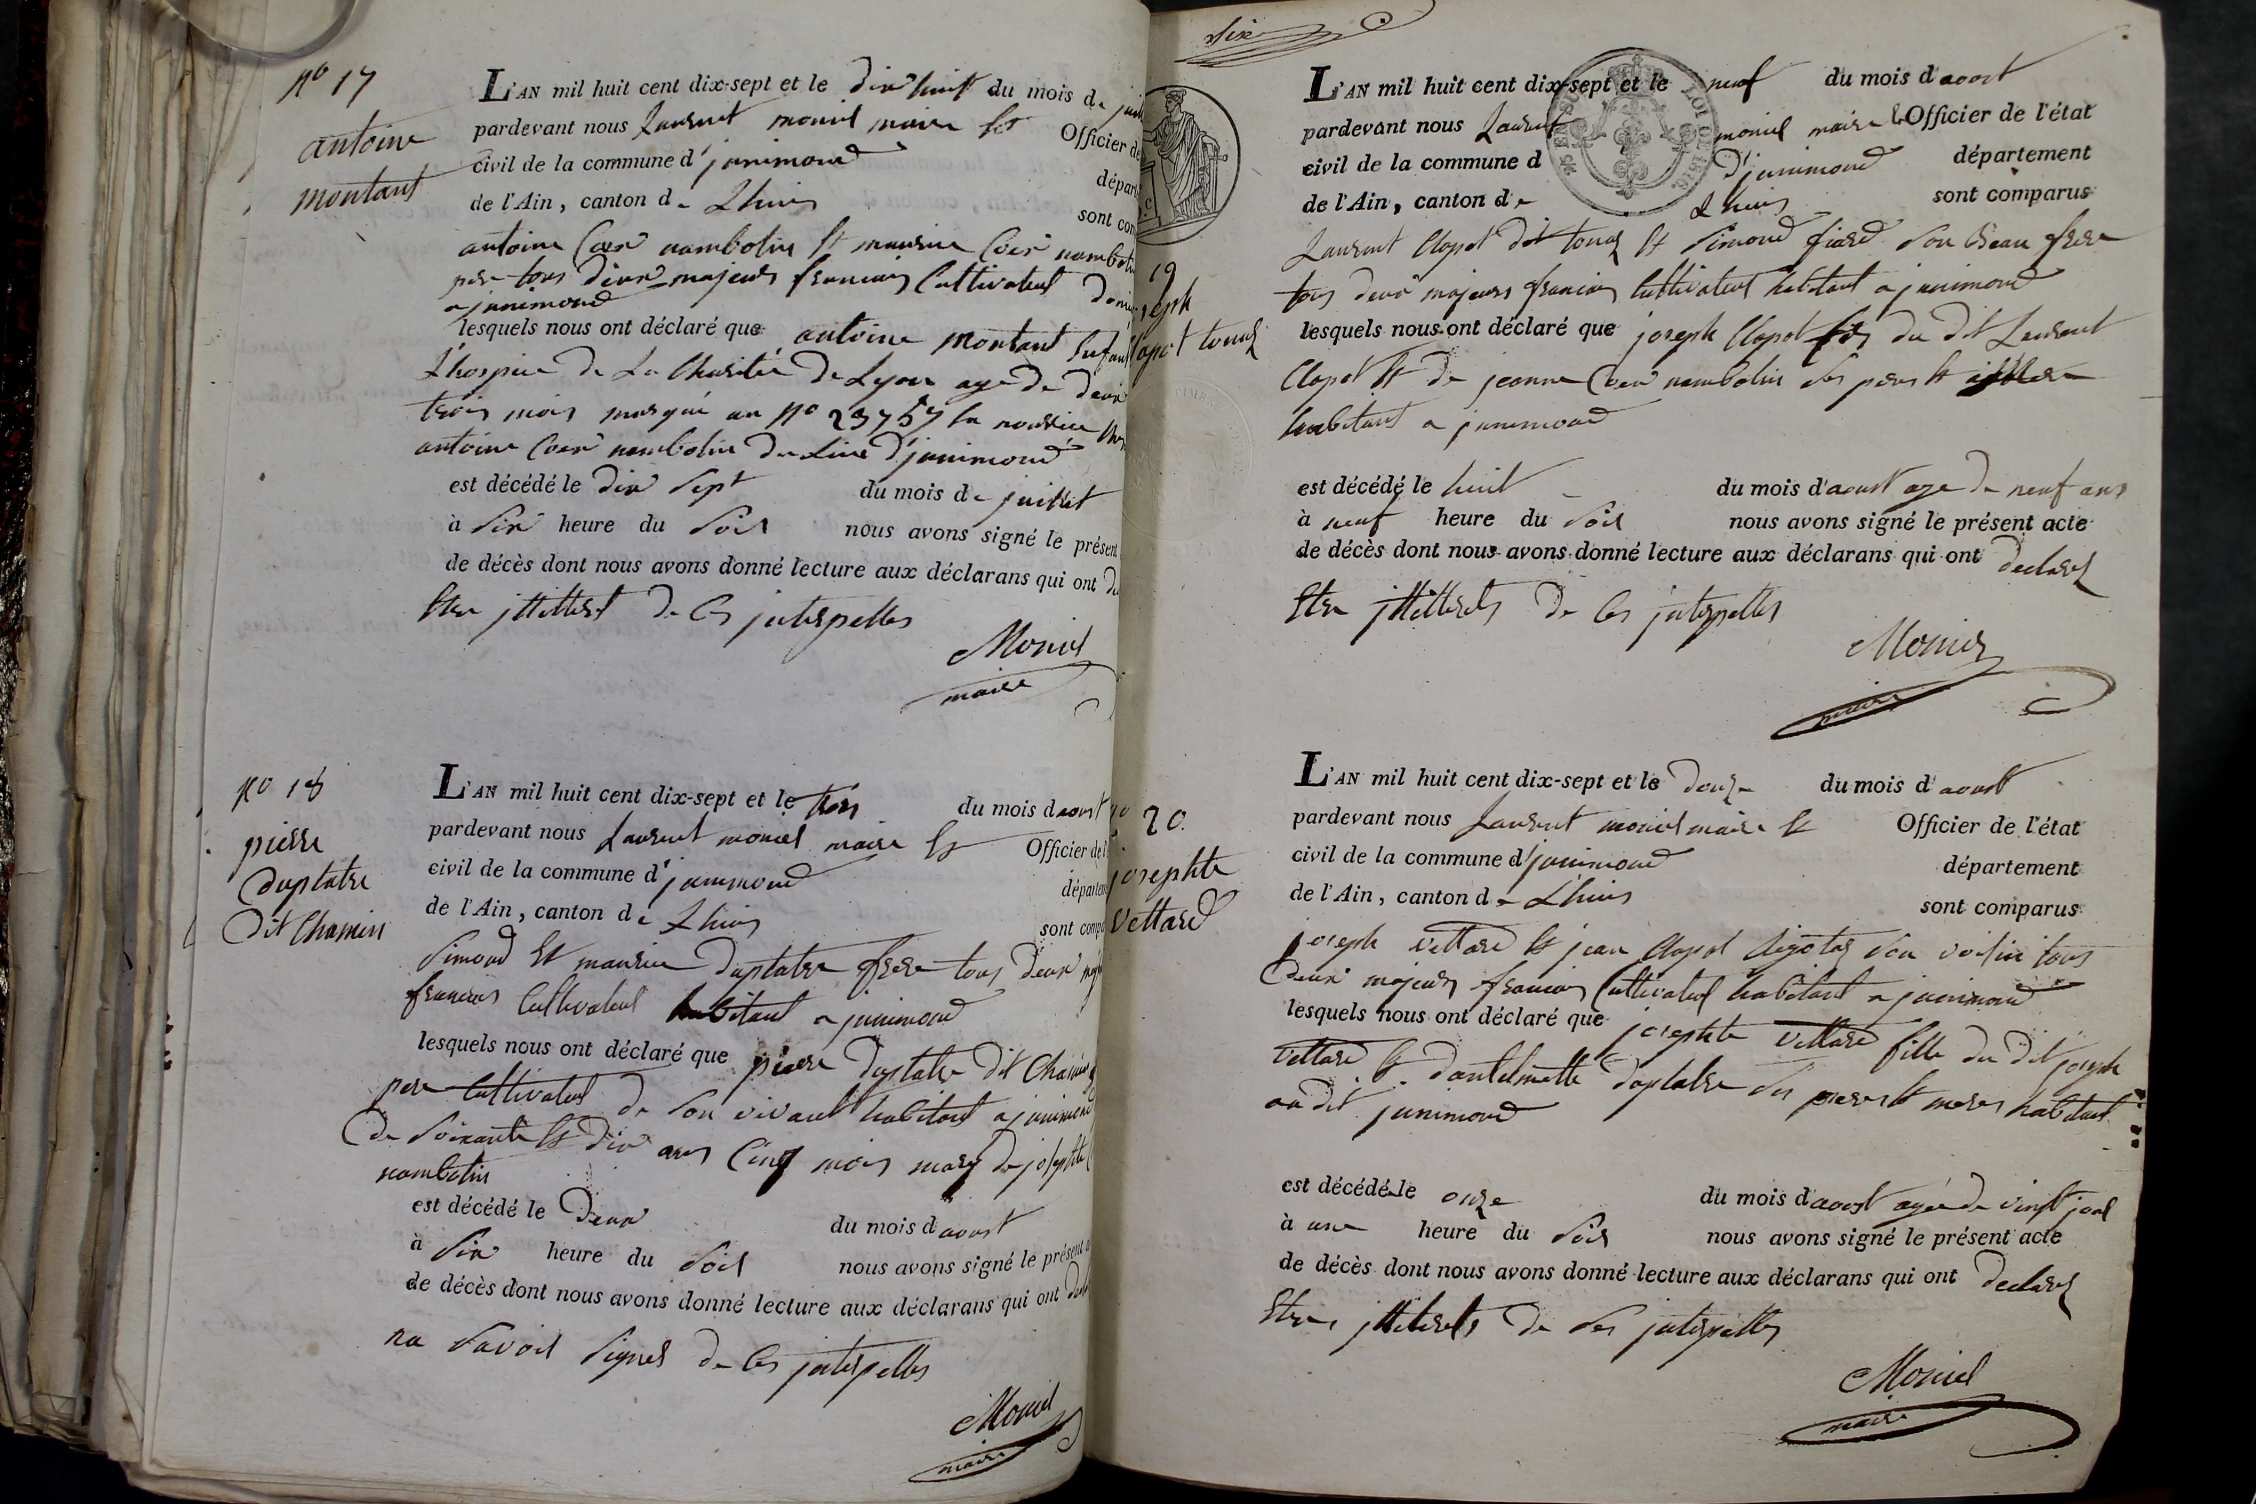 nº 17
antoine
montant
L'AN mil huit cent dix-sept et le dix huit du mois de juil
pardevant nous Laurent monier maire et Officier de
civil de la commune d'junimond
départ
de l'Ain, canton de Lhuis
sont com
antoine Coer nambotin et maurice Coer nambotin
per tous deux majeurs francais Cultivateur
a junimond
lesquels nous ont déclaré que antoine montant Enfant
L'hospice de La Charitée de Lyon age de deux
trois mois marqué au nº 23757 en nourrice Chez
antoine Coer nambotin du Lieu d'junimond
est décédé le dix Sept du mois de juillet
à Six heure du Soir nous avons signé le présent
de décès dont nous avons donné lecture aux déclarans qui ont de
Etre jlletteret de Ces jnterpelles
Monier
maire
nº 18
pierre
duplatre
Dit Chamin
L'AN mil huit cent dix-sept et le trois du mois d'aoust
pardevant nous Laurent monier maire et Officier de l'
civil de la commune d'junimond
départem
de l'Ain, canton de Lhuis
sont comp
Simond Et maurice Duplatre frere tous deux maj
francais Cultivateur habitant a junimond
lesquels nous ont déclaré que pierre Duplatre Dit Chamin
per Cultivateur de Son vivant habitant a junimond
De Soixante et dix ans Cinq mois mary de josephte
nambotin
est décédé le Deux du mois d'aoust
à Six heure du Soir nous avons signé le présent a
de décès dont nous avons donné lecture aux déclarans qui ont
na Savoir Signer de Ces jnterpelles
Monier
maire
Six
19
seph
lapot tourz
L'AN mil huit cent dix-sept et le neuf du mois d'aoust
pardevant nous Laurent monier maire & Officier de l'état
civil de la commune d'junimond département
de l'Ain, canton de Lhuis sont comparus
Laurent Clapot dit Et Simond fiard Son Beau frere
tous deux majeurs francais Cultivateur habitant a junimond
lesquels nous ont déclaré que joseph Clapot fis du dit Laurent
Clapot Et De jeanne Coer nambotin Ses peres Et
habitant a junimond
est décédé le huit du mois d'aoust age de neuf ans
à neuf heure du Soir nous avons signé le présent acte
de décès dont nous avons donné lecture aux déclarans qui ont declarez
Etre jlletterets De Ces jnterpelles
Monier
maire
nº 20.
josephte
Vettard
L'AN mil huit cent dix-sept et le douze du mois d'aoust
pardevant nous Laurent monier maire Et Officier de l'état
civil de la commune d'junimond département
de l'Ain, canton de Lhuis sont comparus
joseph vettard Et jean Clapot Son voisin tous
Deux majeurs francais Cultivateur habitant a junimond
lesquels nous ont déclaré que josephte vettard fille du dit joseph
vettard Et dantelmette Duplatre Ses peres Et meres habitant
au dit junimond
est décédé le onze du mois d'aoust agée de vingt jour
à une heure du Soir nous avons signé le présent acte
de décès dont nous avons donné lecture aux déclarans qui ont declarez
Etres jlleterets De Ses jnterpelles
Monier
maire